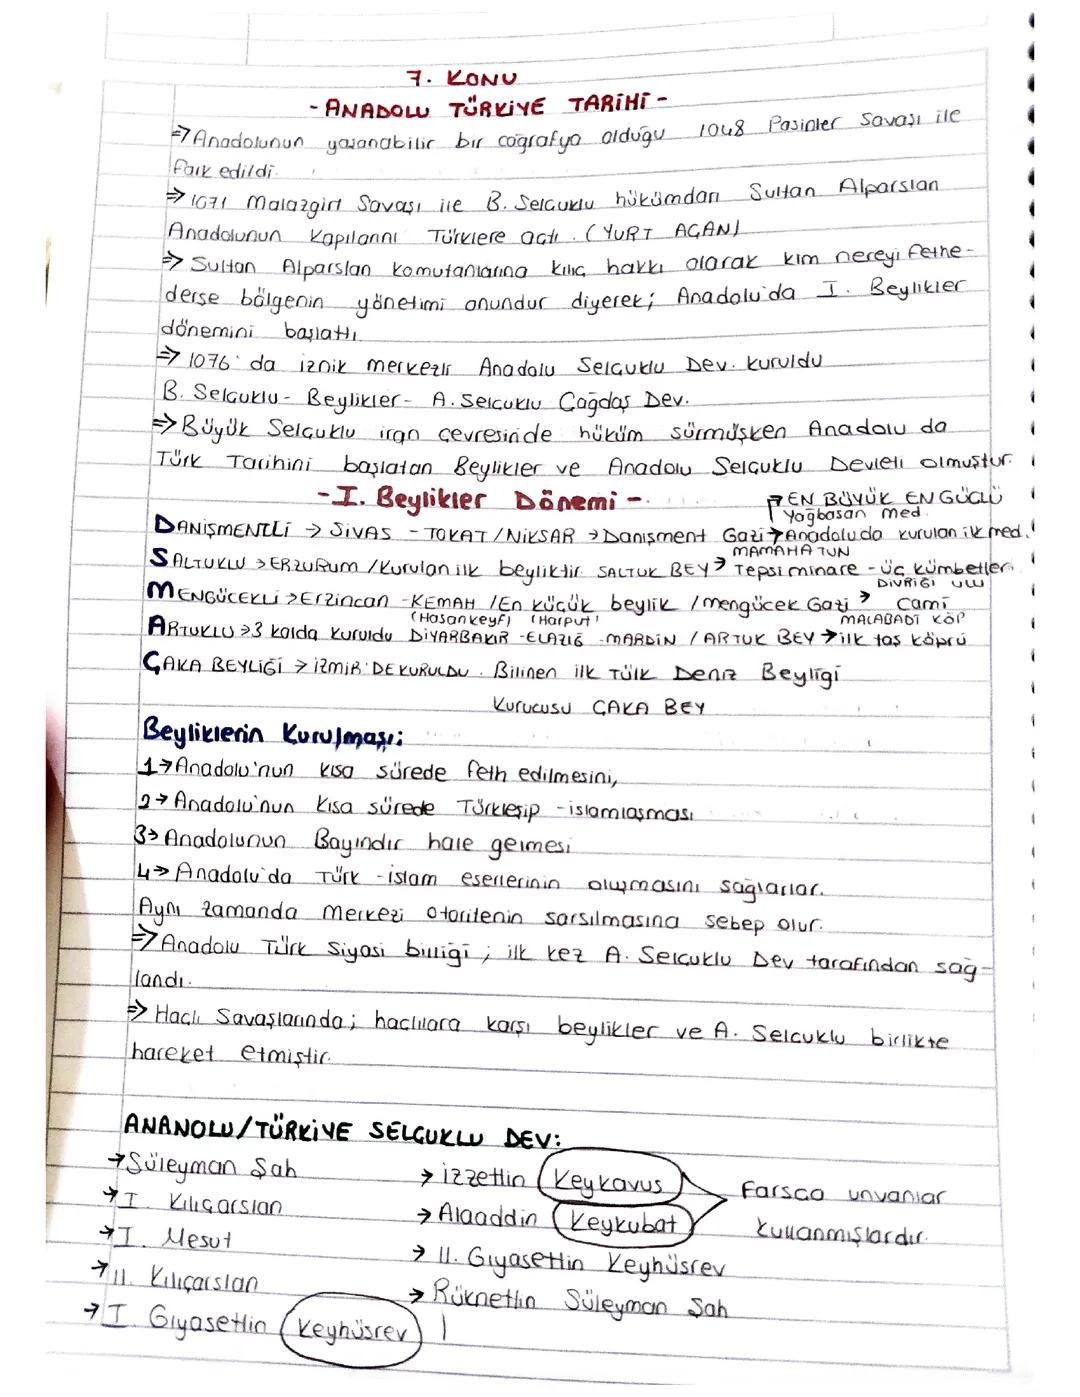 7. KONU
- ANADOLU TÜRKİYE TARİHİ -
⇒ Anadolunun yaşanabilir bir coğrafya olduğu 1048 Pasinler Savaşı ile
fark edildi.
⇒ 1071 Malazgirt Savaşı ile B. Selçuklu hükümdarı Sultan Alparslan
Anadolunun Kapılarını Türklere açtı. (YURT AÇAN)
⇒ Sultan Alparslan komutanlarına kılıç hakkı olarak kim nereyi fethe-
derse bölgenin yönetimi onundur diyerek; Anadolu'da I. Beylikler
dönemini başlattı
⇒ 1076' da iznik merkezli Anadolu Selçuklu Dev. kuruldu
B. Selçuklu - Beylikler - A. Selçuklu Çağdaş Dev.
⇒ Büyük Selçuklu iran çevresinde hüküm sürmüşken Anadolu da
Türk Tarihini başlatan Beylikler ve Anadolu Selçuklu Devleti olmuştur.
- I. Beylikler Dönemi -
→ EN BÜYÜK EN GÜÇLÜ
Yağbasan med.
DANİŞMENTLİ → SİVAS - TOKAT / NİKSAR → Danişment Gazi → Anadoluda kurulan ilk med.
MAMAHATUN
SALTUKLU → ERZURUM / Kurulan ilk beyliktir. SALTUK BEY → Tepsi minare - üç kümbetler
DİVRİĞİ ULU
MENGÜCEKLİ → Erzincan - KEMAH / En küçük beylik / mengücek Gazi → Cami
(Hasankeyf) (Harput) MALABADİ KÖP
ARTUKLU → 3 kolda kuruldu DİYARBAKIR - ELAZIĞ - MARDİN / ARTUK BEY → ilk taş köprü
ÇAKA BEYLİĞİ → İZMİR' DE KURULDU. Bilinen ilk Türk Deniz Beyliği
Kurucusu ÇAKA BEY
Beyliklerin Kurulması;
1→ Anadolu'nun kısa sürede feth edilmesini,
2→ Anadolu'nun kısa sürede Türkleşip - islamlaşması
3→ Anadolunun Bayındır hale gelmesi
4→ Anadolu'da Türk - islam eserlerinin oluşmasını sağlarlar.
Aynı zamanda merkezi otoritenin sarsılmasına sebep olur.
⇒ Anadolu Türk Siyasi birliği ; ilk kez A. Selçuklu Dev tarafından sağ-
landı.
⇒ Haçlı Savaşlarında ; haçlılara karşı beylikler ve A. Selçuklu birlikte
hareket etmiştir.
ANANOLU/TÜRKİYE SELÇUKLU DEV:
→ Süleyman Şah
→ I. Kılıçarslan
→ I. Mesut
→ II. Kılıçarslan
→ I. Gıyasettin Keyhüsrev
→ izzettin Keykavus
→ Alaaddin Keykubat
→ II. Gıyasettin Keyhüsrev
→ Rüknettin Süleyman Şah
Farsça unvanlar
kullanmışlardır.